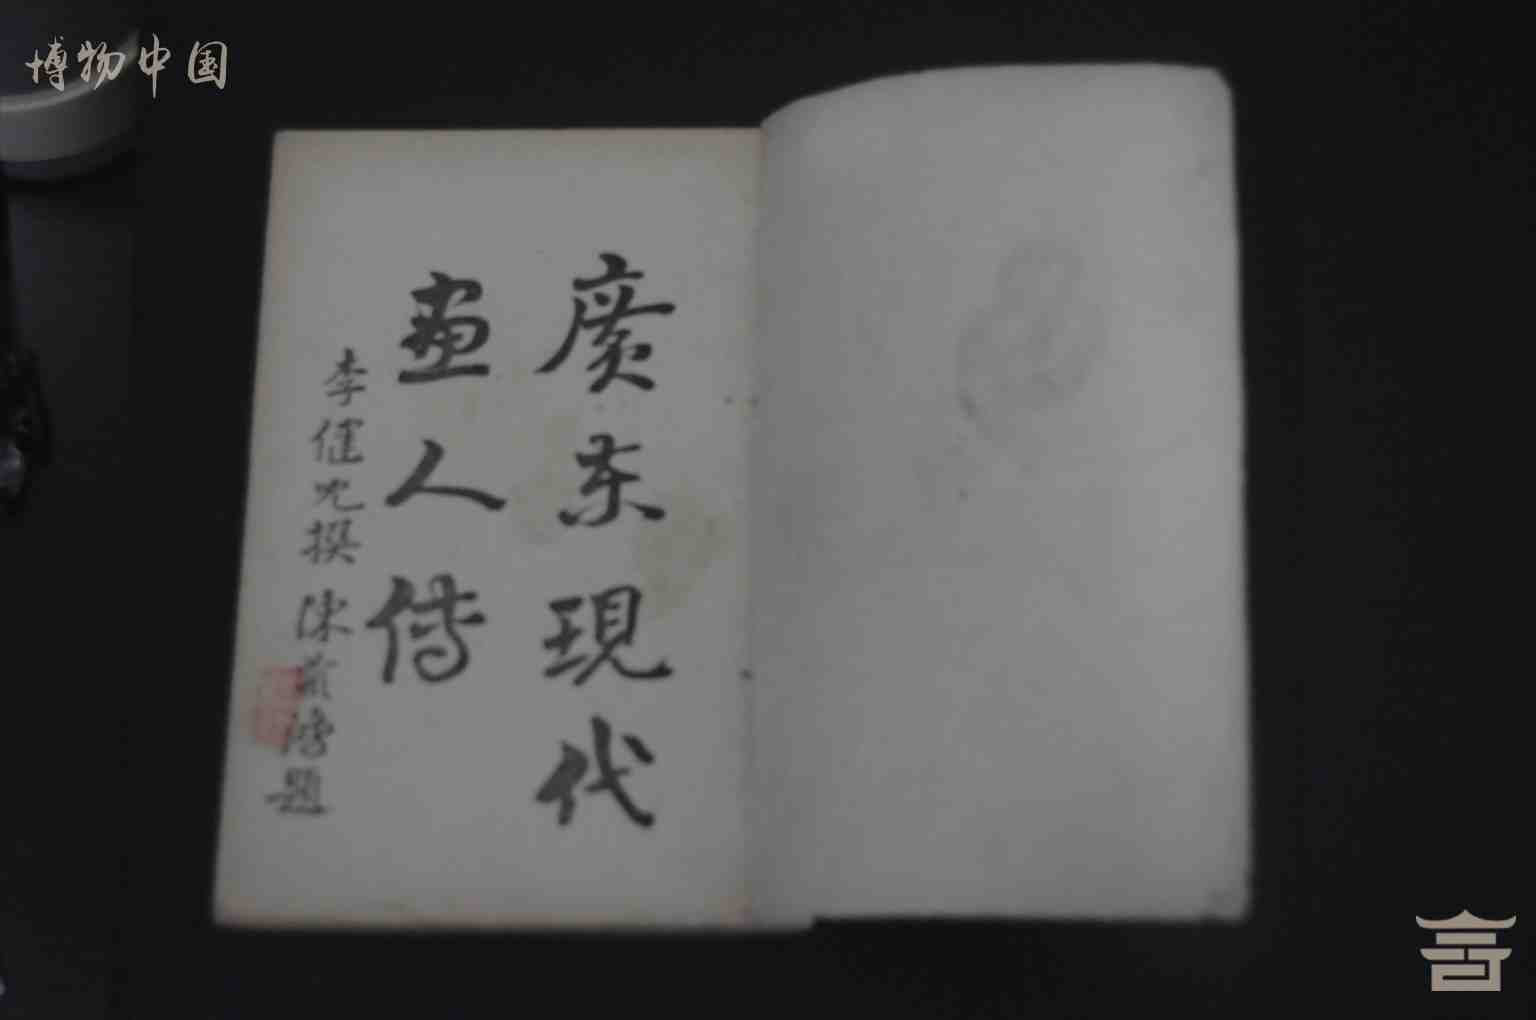 博物中国
廣东現代
畫人傳
李健兒撰 陳荊鴻題